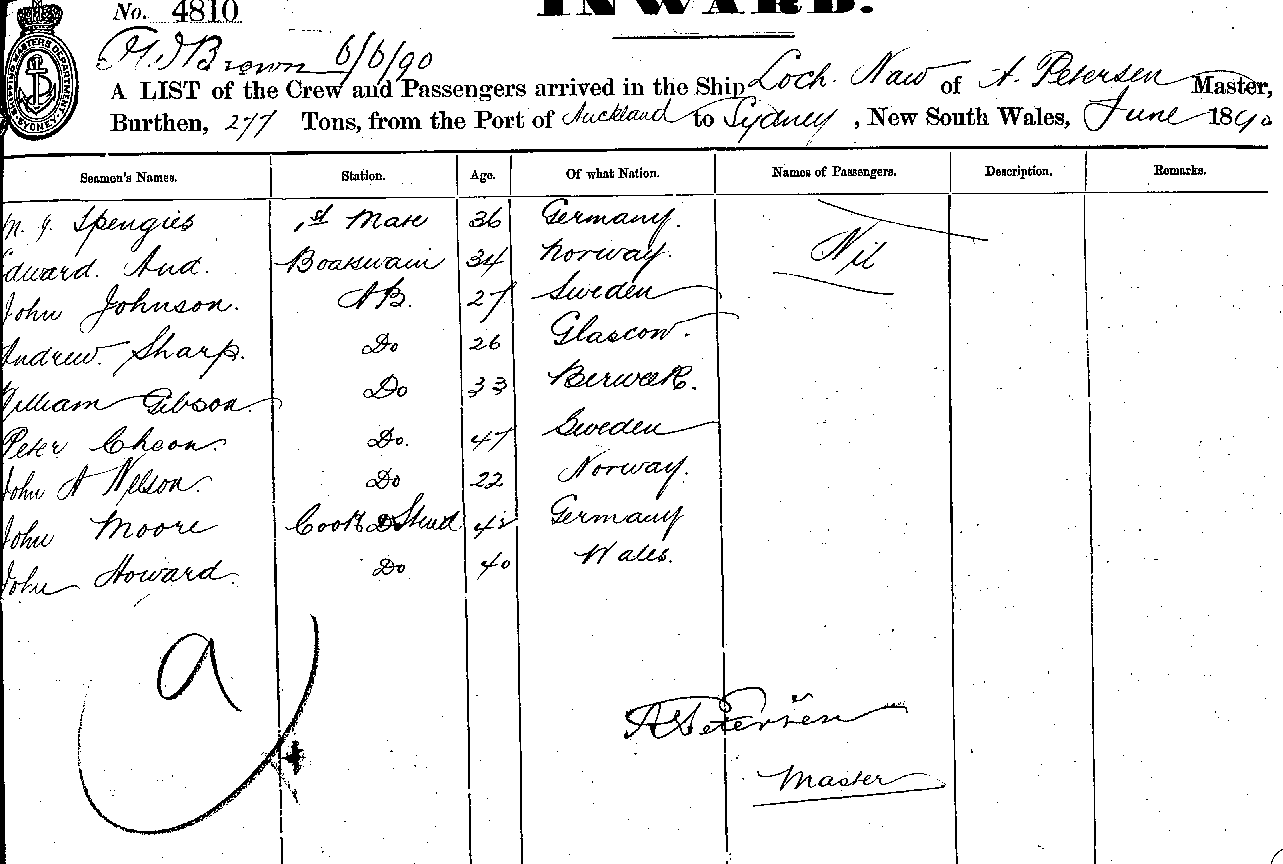 No. 4810
INWARD.
H. J Brown 6/6/90
A LIST of the Crew and Passengers arrived in the Ship Loch. Naw of A. Petersen Master,
Burthen, 277 Tons, from the Port of Auckland to Sydney, New South Wales, June 1890
Seamen's Names. Station. Age. Of what Nation. Names of Passengers. Description. Remarks.
M. J. Spengies 1st Mate 36 Germany. Nil
Edward. Aud. Boatswain 34 Norway.
John Johnson. AB. 27 Sweden
Andrew. Sharp. Do 26 Glascow.
William Gibson. Do 33 Berwick.
Peter Cheon. Do. 47 Sweden
John A Nelson. Do 22 Norway.
John Moore Cook & Stwd 42 Germany
John Howard. Do 40 Wales.
a
A Petersen
Master